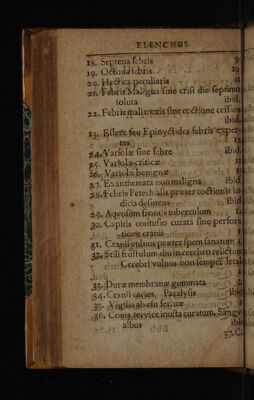 ELENCHUS
18. Septena febris 9
19. Octona febris 10
20. Hectica peculiaris 11
21. Febris Maligna sine crisi die septimo
soluta ibid.
22. Febris mali moris sine coctione cessans
ibid.
23. Essere seu Epinyctides febris exper-
tes 12
24. Variolæ sine febre ibid.
25. Variolæ criticæ
26. Variolæ benignæ
27. Exanthemata non maligna ibid.
28. Febris Petechialis præter coctionis in-
dicia desinens
29. Aquosum frontis tuberculum
30. Capitis contusio curata sine perfora-
tione cranii
31. Cranii vulnus præter spem sanatum
32. Stili frustulum diu in cerebro relictum
Cerebri vulnus non semper letal
33. Duræ membranæ gummata
34. Cranii caries. Paralysis ibid
35. Vigilia ab esu ferinæ
36. Coma service inusta curatum. Sangu
albus ibid
37. C